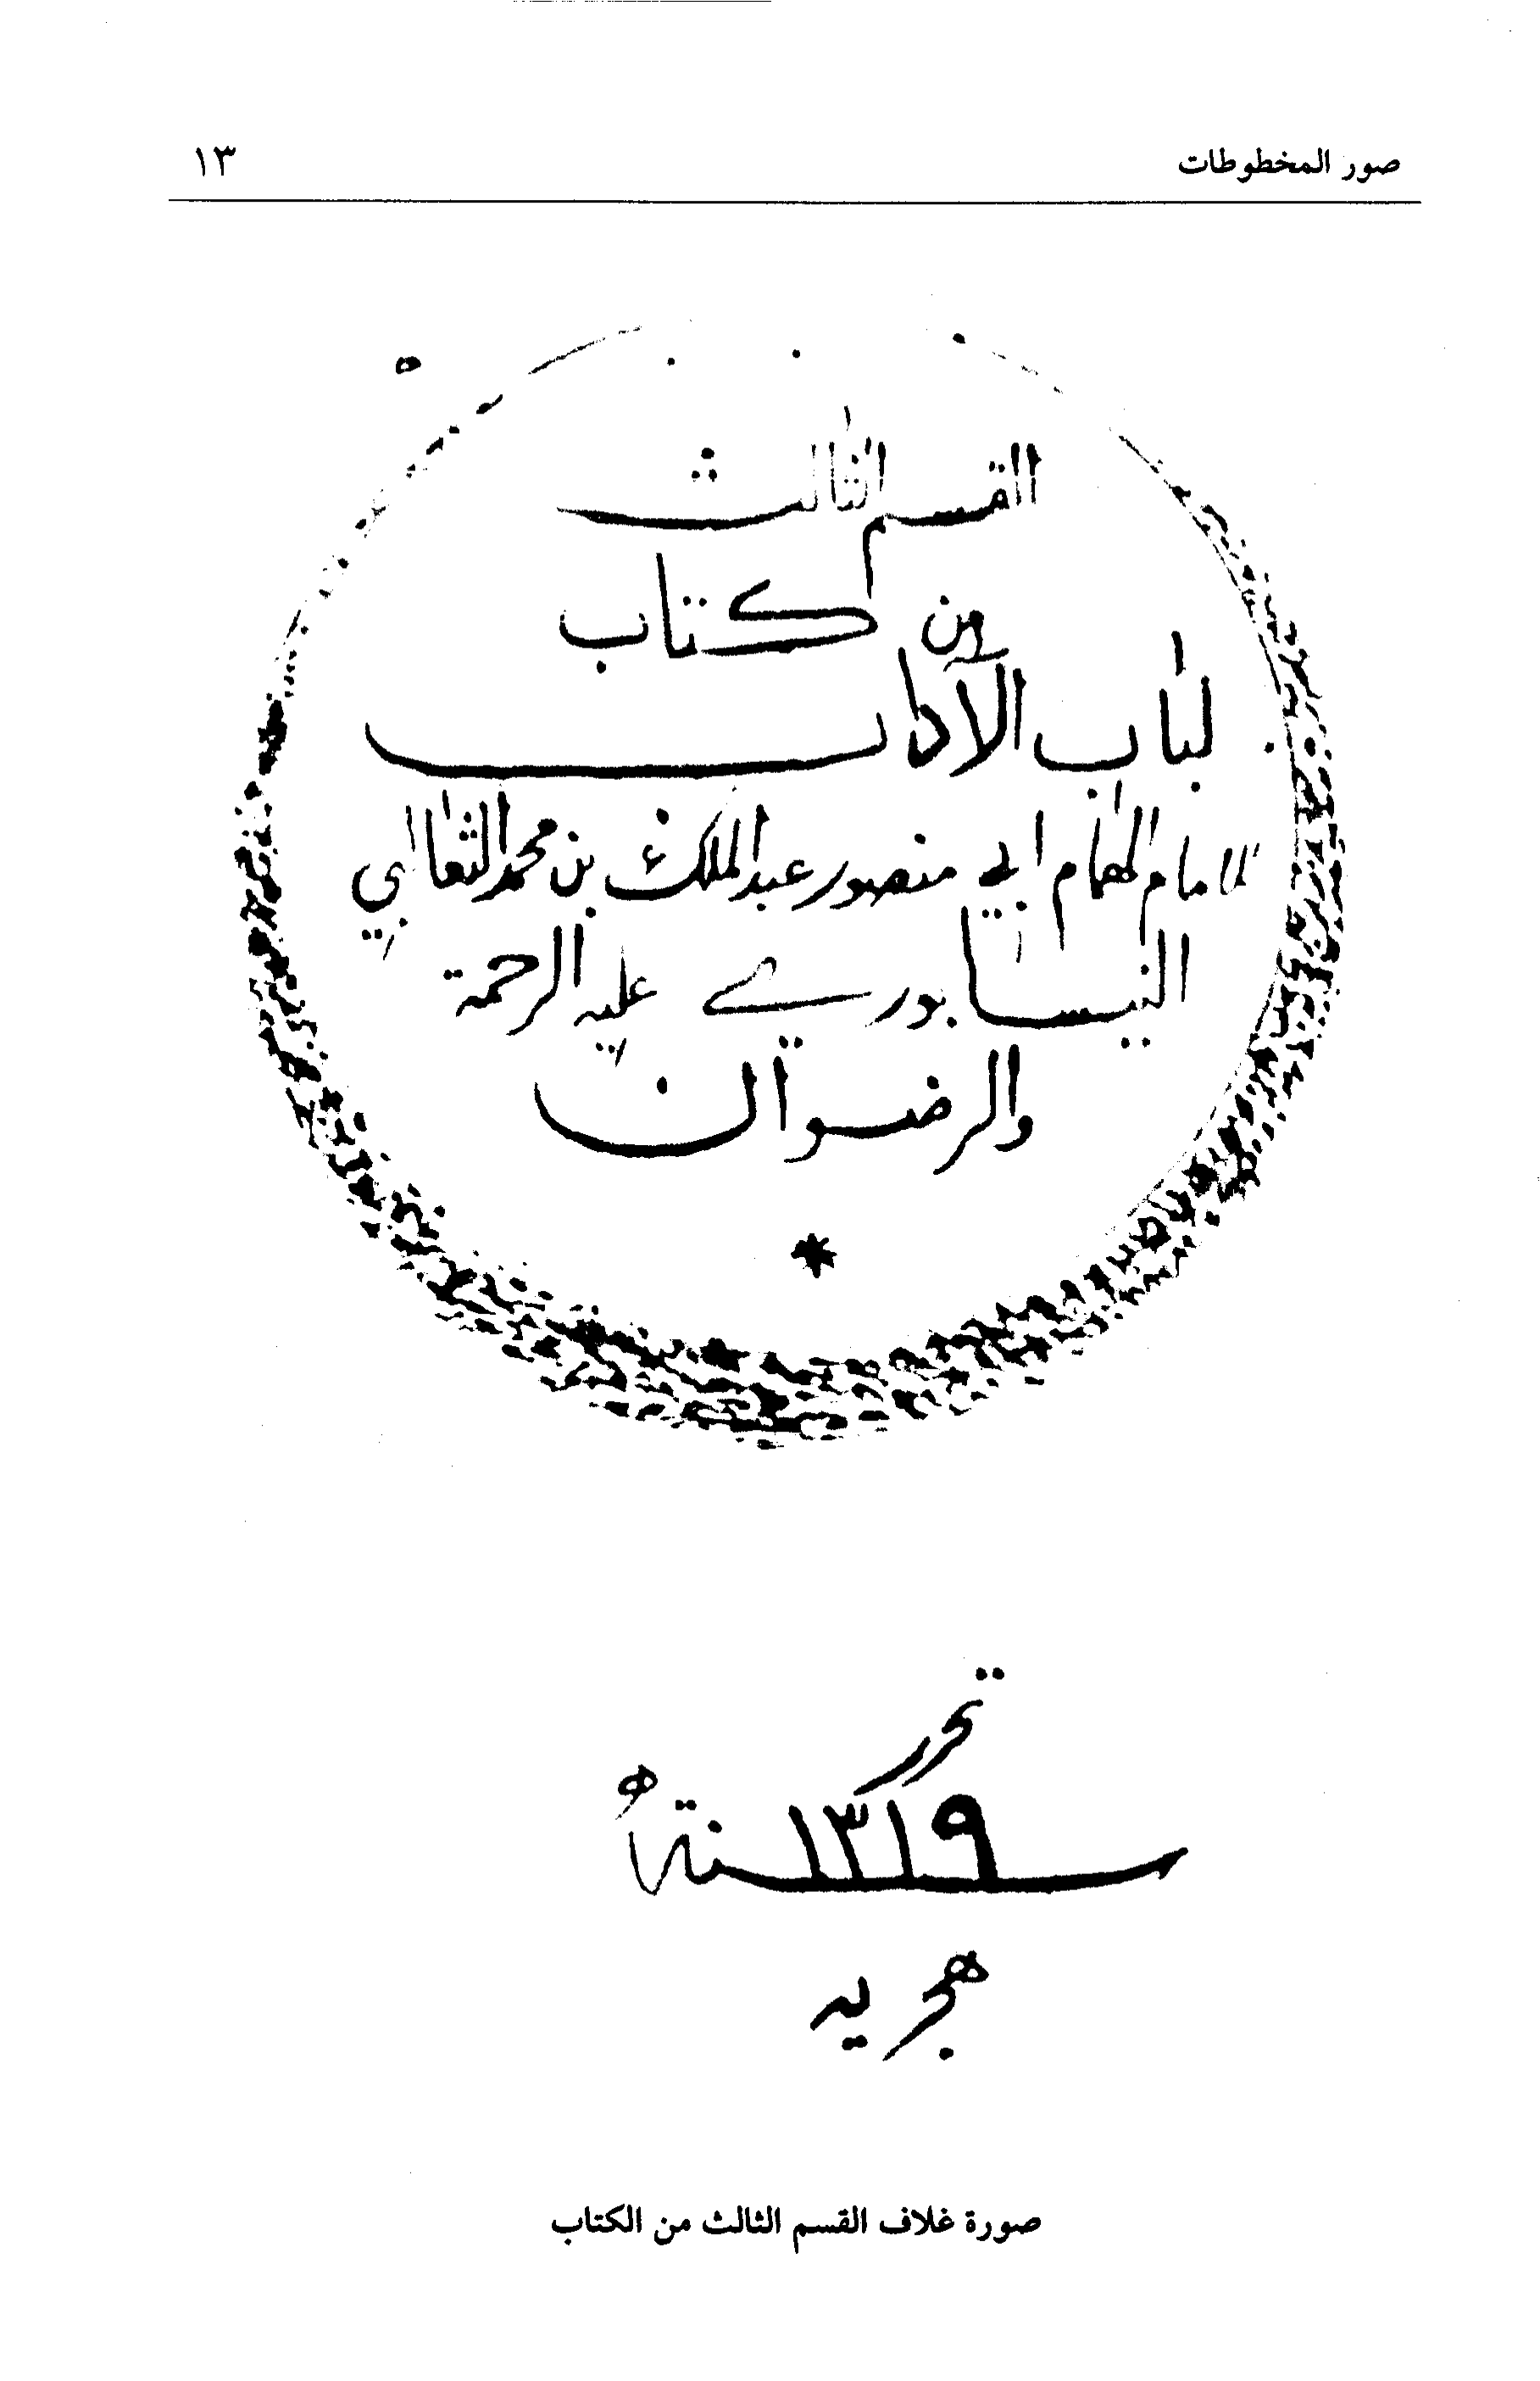 صور المخطوطات
١٣
القسم الثالث
من كتاب
لباب الآداب
للامام الهمام ابي منصور عبد الملك بن محمد الثعالبي
النيسابوري عليه الرحمة
والرضوان
*
تحرر
سنة ١٣١٩
هجريه
صورة غلاف القسم الثالث من الكتاب